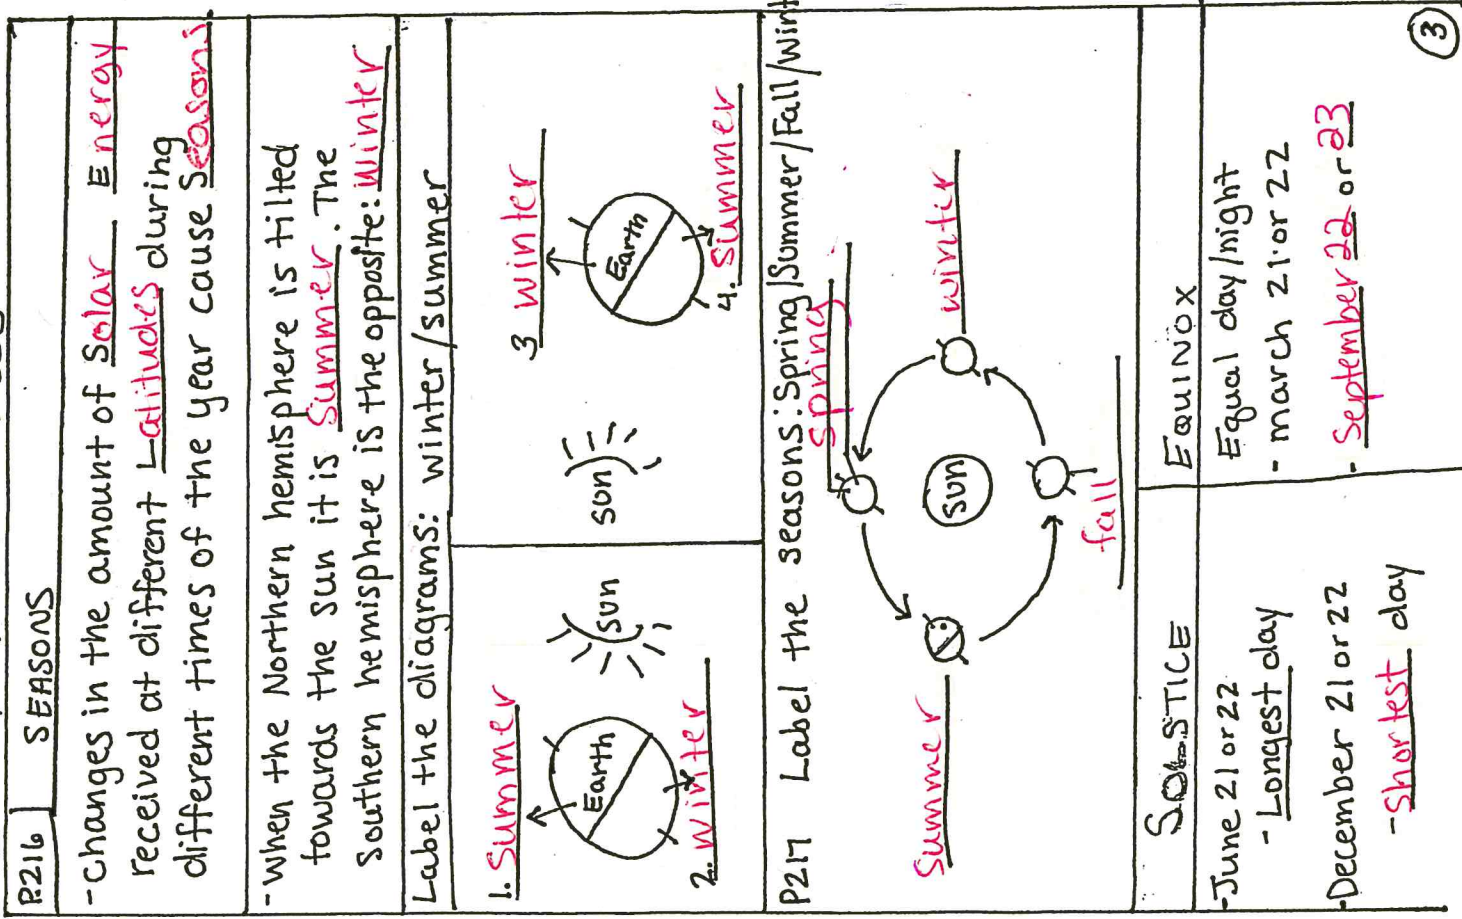 P.216 SEASONS
- Changes in the amount of Solar Energy
received at different Latitudes during
different times of the year cause Seasons
- When the Northern hemisphere is tilted
towards the sun it is Summer. The
Southern hemisphere is the opposite: Winter
Label the diagrams: winter/summer
1. Summer
Earth
2. winter
sun
sun
3 winter
Earth
4. Summer
P217 Label the seasons: Spring/Summer/Fall/Wint
Spring
Summer
sun
winter
fall
SOLSTICE
- June 21 or 22
- Longest day
- December 21 or 22
- Shortest day
EQUINOX
Equal day/night
- march 21 or 22
- September 22 or 23
3